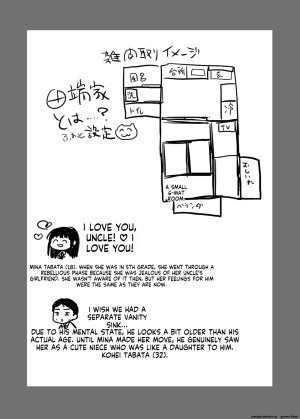 雑間取りイメージ
台所
玄
風呂
洗
トイレ
冷
TV
おしいれ
A SMALL
6-MAT
ROOM
ベランダ
田端家
とは…?
ふわっと設定
I LOVE YOU,
UNCLE! ♡ I
LOVE YOU!
MINA TABATA (18). WHEN SHE WAS IN 5TH GRADE, SHE WENT THROUGH A
REBELLIOUS PHASE BECAUSE SHE WAS JEALOUS OF HER UNCLE'S
GIRLFRIEND. SHE WASN'T AWARE OF IT THEN, BUT HER FEELINGS FOR HIM
WERE THE SAME AS THEY ARE NOW.
I WISH WE HAD A
SEPARATE VANITY
SINK...
DUE TO HIS MENTAL STATE, HE LOOKS A BIT OLDER THAN HIS
ACTUAL AGE. UNTIL MINA MADE HER MOVE, HE GENUINELY SAW
HER AS A CUTE NIECE WHO WAS LIKE A DAUGHTER TO HIM.
KOHEI TABATA (32).